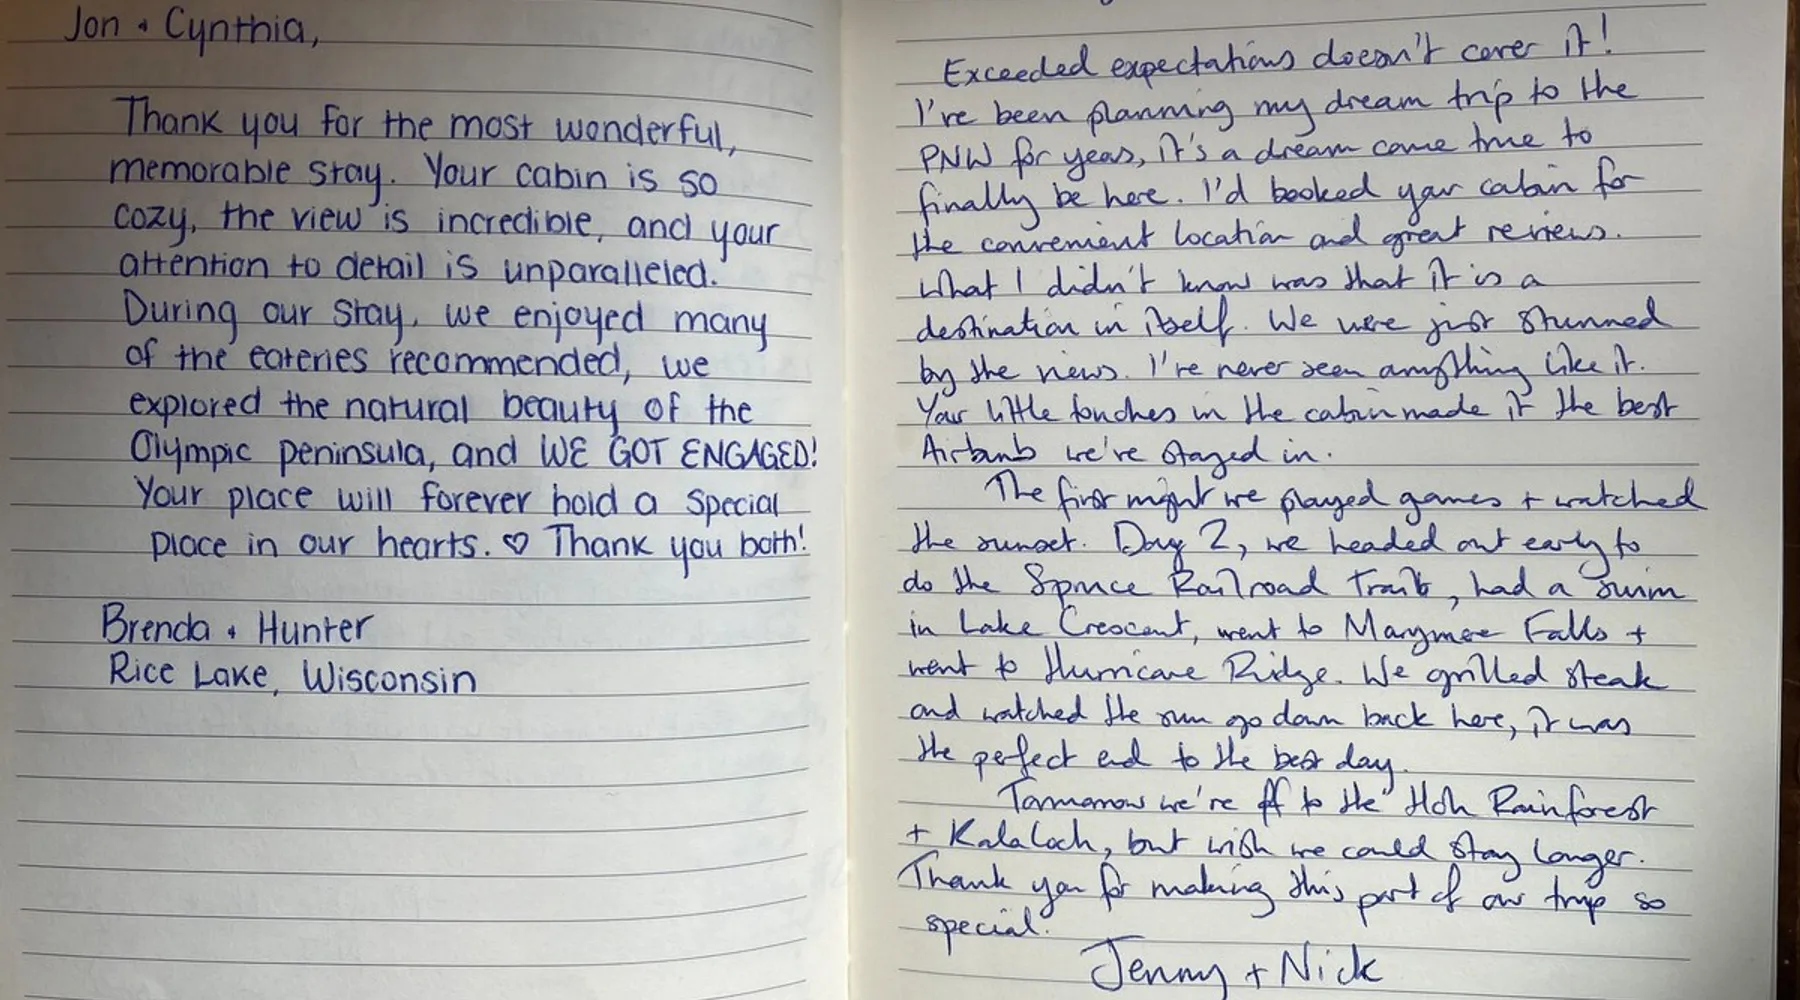 Jon + Cynthia,
Thank you for the most wonderful,
memorable stay. Your cabin is so
cozy, the view is incredible, and your
attention to detail is unparalleled.
During our stay, we enjoyed many
of the eateries recommended, we
explored the natural beauty of the
Olympic peninsula, and WE GOT ENGAGED!
Your place will forever hold a special
place in our hearts. ♡ Thank you both!
Brenda + Hunter
Rice Lake, Wisconsin
Exceeded expectations doesn't cover it!
I've been planning my dream trip to the
PNW for years, it's a dream come true to
finally be here. I'd booked your cabin for
the convenient location and great reviews.
What I didn't know was that it is a
destination in itself. We were just stunned
by the views. I've never seen anything like it.
Your little touches in the cabin made it the best
Airbnb we've stayed in.
The first night we played games + watched
the sunset. Day 2, we headed out early to
do the Spruce Railroad Trail, had a swim
in Lake Crescent, went to Marymere Falls +
went to Hurricane Ridge. We grilled steak
and watched the sun go down back here, it was
the perfect end to the best day.
Tommorow we're off to the Hoh Rainforest
+ Kalaloch, but wish we could stay longer.
Thank you for making this part of our trip so
special.
Jenny + Nick